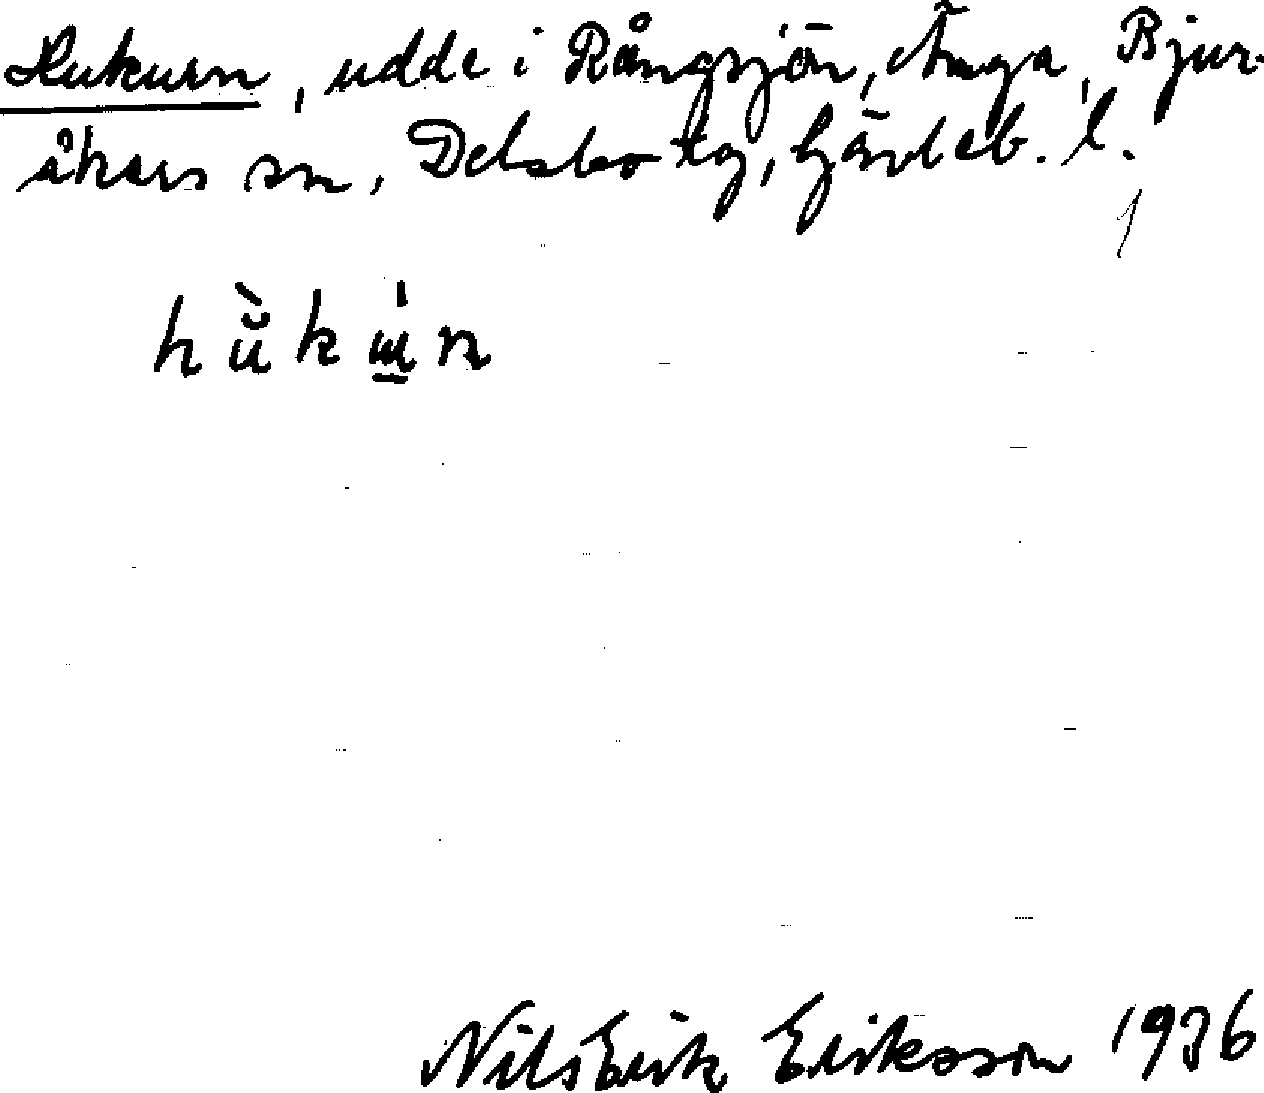 Hukurn, udde i Rångsjön, Änga, Bjur-
åkers sn, Delsbo tg, Gävleb. l.
1
Nils Erik Eriksson 1936